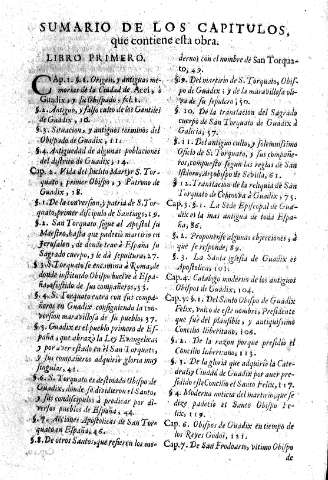 SUMARIO DE LOS CAPITULOS,
que contiene esta obra.
LIBRO PRIMERO.
CAp. 1. §. 1. Origen, y antiguas me-
morias de la Ciudad de Acci, ò
Guadix, y su Obispado, fol. 1.
§. 2. Antiguo, y falso culto de los Gentiles
de Guadix, 10.
§. 3. Situacion, y antiguos terminos del
Obispado de Guadix, 11.
§. 4. Antiguedad de algunas poblaciones
del distrito de Guadix, 14.
Cap. 2. Vida del Inclito Martyr S. Tor-
quato, primer Obispo, y Patrono de
Guadix, 18.
§. 1. De la conversion, y patria de S. Tor-
quato, primer discipulo de Santiago, 19.
§. 2. San Torquato sigue al Apostol su
Maestro, hasta que padeciò martirio en
Jerusalen, de donde trae à España su
Sagrado cuerpo, y le dà sepultura, 27.
§. 3. S. Torquato se encamina à Roma, de
donde instituido Obispo buelve à Espa-
ña, assistido de sus compañeros, 33.
§. 4. S. Torquato entra con sus compa-
ñeros en Guadix consiguiendo la con-
version maravillosa de su pueblo, 37.
§. 5. Guadix es el pueblo primero de Es-
paña, que abrazò la Ley Evangelica
y por aver estado en èl San Torquato,
y sus compañeros adquiriò gloria muy
singular, 41.
§. 6. S. Torquato es destinado Obispo de
Guadix, donde se dividieron el Santo,
y sus condiscipulos à predicar por di-
versos pueblos de España, 44.
§. 7. Acciones Apostolicas de San Tor-
quato en Guadix, 46.
§. 8. De otros Santos, que refieren los mo-
dernos con el nombre de San Torqua-
to, 49.
§. 9. Del martirio de S. Torquato, Obis-
po de Guadix, y de la maravillosa oli-
va de su sepulcro, 50.
§. 10. De la translacion del Sagrado
cuerpo de San Torquato de Guadix à
Galicia, 57.
§. 11. Del antiguo culto, y solemnissimo
Oficio de S. Torquato, y sus compañe-
ros, compuesto segun las reglas de San
Isidoro, Arçobispo de Sevilla, 61.
§. 12. Translacion de la reliquia de San
Torquato de Celanova à Guadix, 73.
Cap. 3. §. 1. La Sede Episcopal de Gua-
dix es la mas antigua de toda Espa-
ña, 86.
§. 2. Proponense algunas objecciones, à
que se responde, 89.
§. 3. La Santa Iglesia de Guadix es
Apostolica, 101.
Cap. 4. Catalogo moderno de los antiguos
Obispos de Guadix, 104.
Cap. 5. §. 1. Del Santo Obispo de Guadix
Felix, vnico de este nombre, Presidente
que fuè del plausible, y antiquissimo
Concilio Iliberitano, 106.
§. 2. De la razon porque presidio el
Concilio Iliberitano, 113.
§. 3. De la gloria que adquiriò la Cate-
dral, y Ciudad de Guadix por aver pre-
sidido este Concilio el Santo Felix, 117.
§. 4. Moderna noticia del martirio, que se
dize padeciò el Santo Obispo Fe-
lix, 119.
Cap. 6. Obispos de Guadix en tiempo de
los Reyes Godos, 121.
Cap. 7. De San Frodoario, vltimo Obispo
de